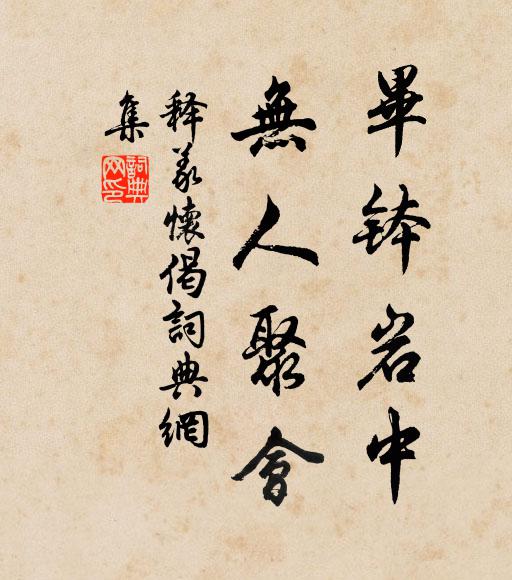 畢鉢岩中
無人聚會
释义懷偈詞典網
集
詞典网印